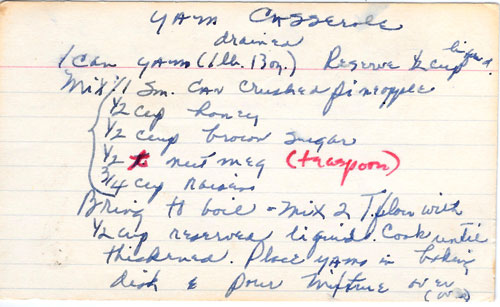 YAM CASSEROLE
drained
1 Can yams (1 lb. 13 oz.) Reserve 1/2 cup liquid.
Mix: 1 Sm. Can crushed pineapple
1/2 cup honey
1/2 cup brown sugar
1/2 t nutmeg (teaspoon)
3/4 cup raisins
Bring to boil - Mix 2 T. flour with
1/2 cup reserved liquid. Cook until
thickened. Place yams in baking
dish & pour mixture over